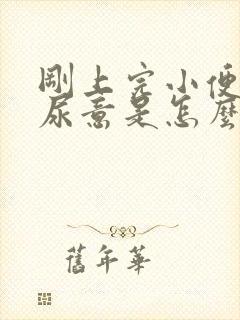 剛上完小便
尿意是怎麼
舊年華